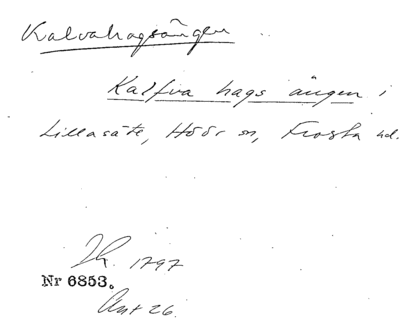 Kalvahagsängen
Kalfva hags ängen i
Lillasäte, Höör sn, Frosta hd.
1797
Nr 6853.
Akt 26.